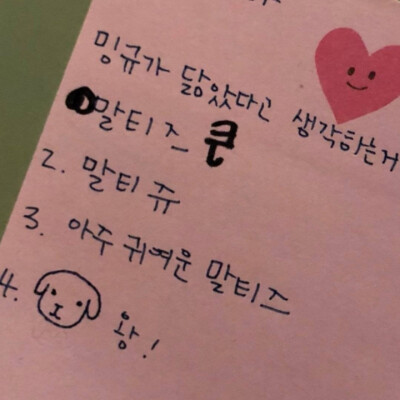 밍규가 닮았다고 생각하는거
말티즈 쿤
2. 말티쥬
3. 아주 귀여운 말티즈
4. 왕!